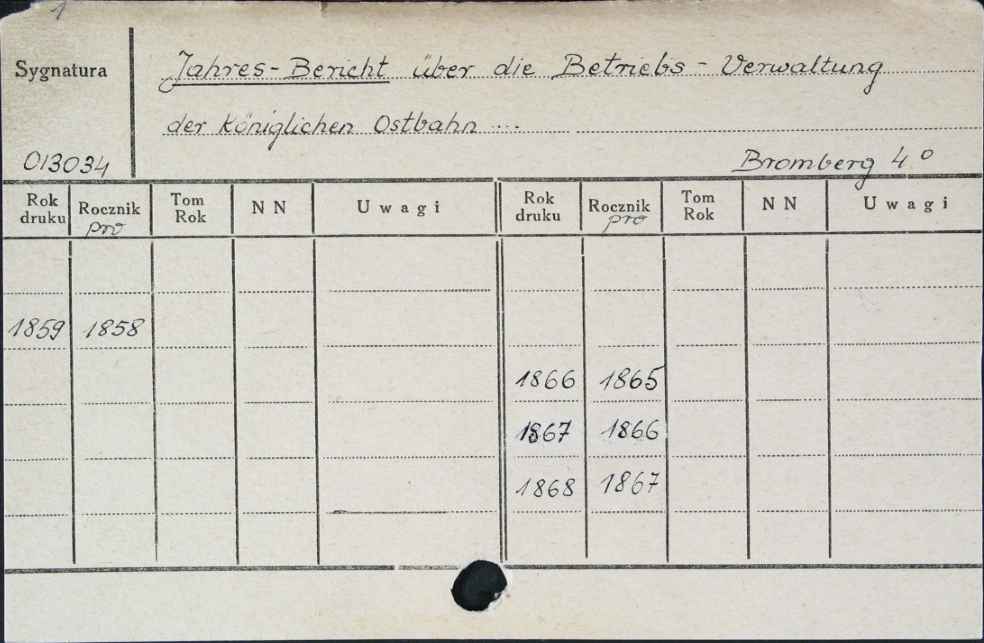 1
Sygnatura
Jahres-Bericht über die Betriebs-Verwaltung
der Königlichen Ostbahn ...
013034
Bromberg 4°
Rok druku Rocznik pro Tom Rok NN Uwagi Rok druku Rocznik pro Tom Rok NN Uwagi
1859 1858
1866 1865
1867 1866
1868 1867